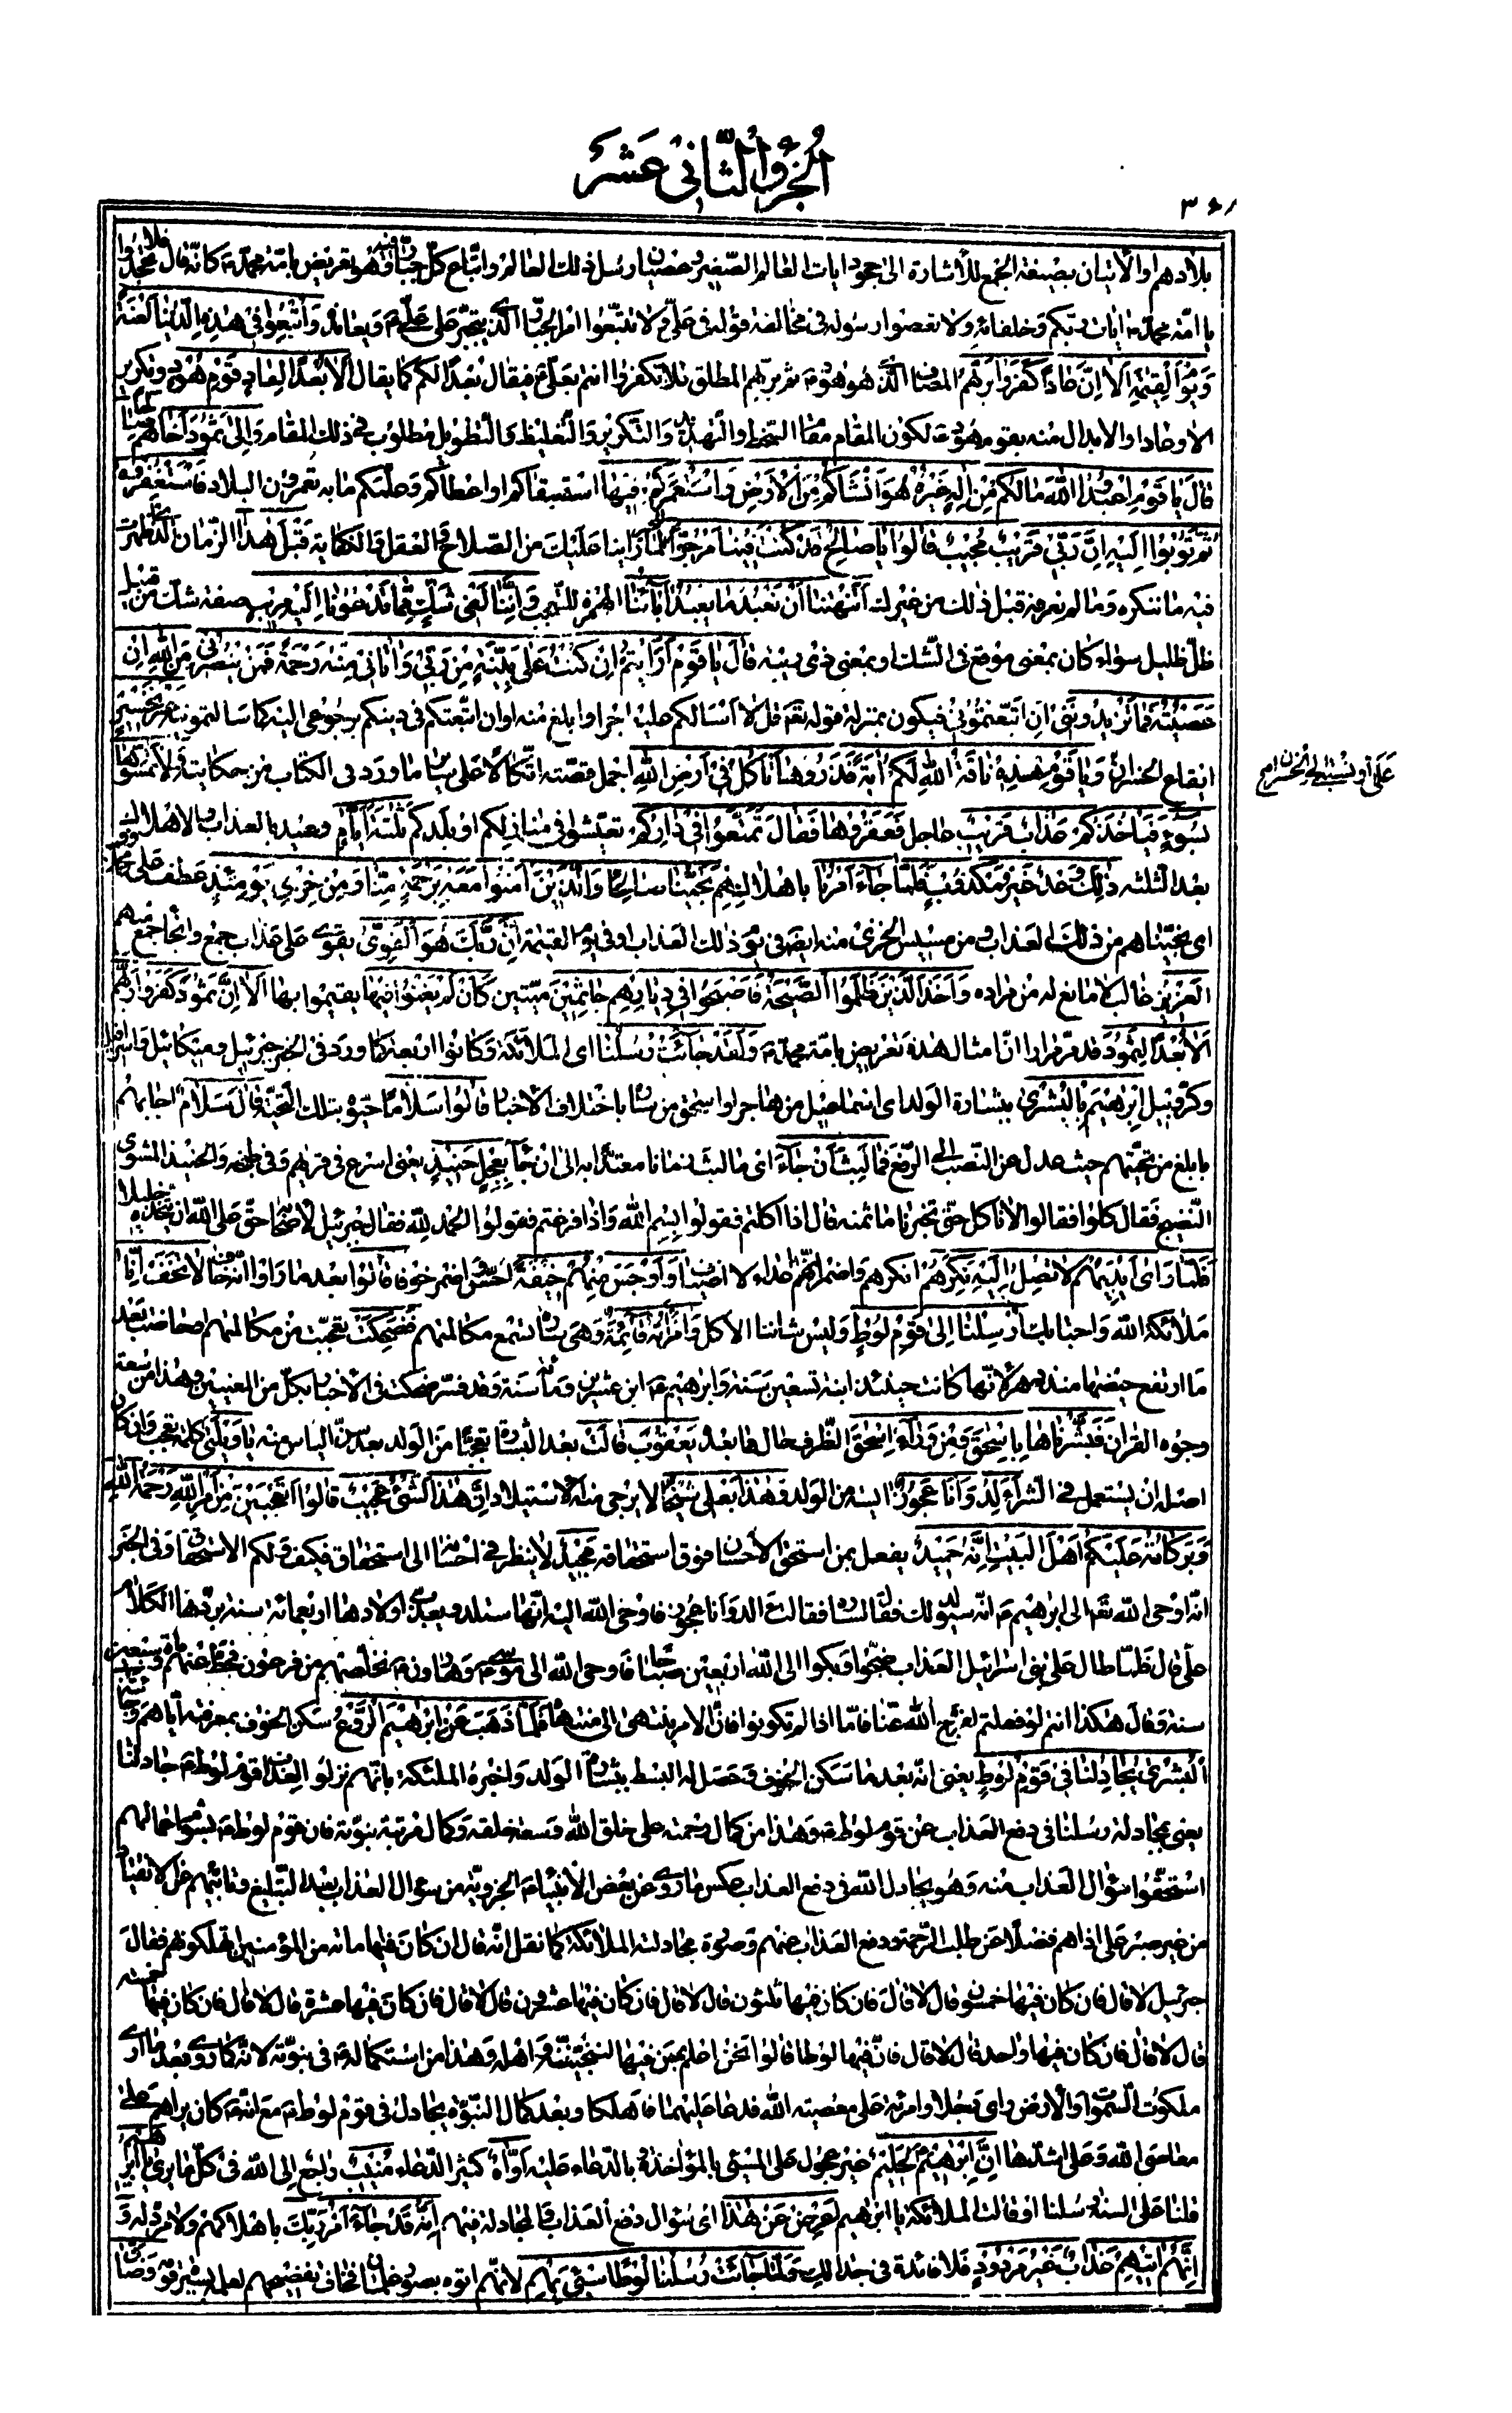 الجزؤ الثانی عشر
٣٦١
بلادهم او والاتیان بصیغة الجمع للاشارة الی جحود ایات العالم الصغیر وعصیان رسل ذلك العالم واتباع کل جبار فیه وهو تعریض بامة محمد ص کانه قال فلا تجحدوا
یا امة محمد ص ایات ربکم وخلفائه ولا تعصوا رسوله فی مخالفة قوله فی علی ع ولا تتبعوا امر الجبار الذی یتجبر علی علی ع ویعانده وَاُتْبِعُوا فی هٰذِهِ الدُّنْیٰا لَعْنَةً
وَیَوْمَ الْقِیٰمَةِ اَلاٰ اِنَّ عٰاداً کَفَرُوا رَبَّهُمْ المضاف الذی هو هود ع ثم ربهم المطلق فلا تکفروا انتم بعلی ع فیقال بعداً لکم کما یقال اَلاٰ بُعْداً لِعٰادٍ قَوْمِ هُودٍ وتکریر
الا وعادا والابدال منه بقوم هود ع لکون المقام مقام السخط والتهدید والتکریر والتغلیظ والتطویل مطلوب فی ذلك المقام وَاِلیٰ ثَمُودَ اَخٰاهُمْ صٰالِحاً
قٰالَ یٰا قَوْمِ اعْبُدُوا اللهَ مٰا لَکُمْ مِنْ اِلٰهٍ غَیْرُهُ هُوَ اَنْشَاَکُمْ مِنَ الْاَرْضِ وَاسْتَعْمَرَکُمْ فیهٰا استبقاکم او اعطاکم وعلمکم ما به تعمرون البلاد فَاسْتَغْفِرُوهُ
ثُمَّ تُوبُوا اِلَیْهِ اِنَّ رَبّی قَریبٌ مُجیبٌ قٰالُوا یٰا صٰالِحُ قَدْ کُنْتَ فینٰا مَرْجُوّاً لما راینا علیك من الصلاح والعقل والکفایة قَبْلَ هٰذٰا الزمان الذی ظهرت
فیه ما ننکره وما لم نعرفه قبل ذلك من خیر لك اَتَنْهٰنٰا اَنْ نَعْبُدَ مٰا یَعْبُدُ اٰبٰاؤُنٰا الهمزة للتعجب وَاِنَّنٰا لَفی شَكٍّ مِمّٰا تَدْعُونٰا اِلَیْهِ مُریبٍ صفة شك من قبیل
ظل ظلیل سواء کان بمعنی موقع فی الشك او بمعنی ذی ریبة قٰالَ یٰا قَوْمِ اَرَاَیْتُمْ اِنْ کُنْتُ عَلیٰ بَیِّنَةٍ مِنْ رَبّی وَاٰتٰانی مِنْهُ رَحْمَةً فَمَنْ یَنْصُرُنی مِنَ اللهِ اِنْ
عَصَیْتُهُ فَمٰا تَزیدُونَنی ان اتبعتمونی فیکون بمنزلة قوله تعم قل لا اسالکم علیه اجرا او ابلغ منه او ان اتبعتکم فی دینکم برجوعی الیه کما سالتمونیه غَیْرَ تَخْسیرٍ
ایقاع الخسران وَیٰا قَوْمِ هٰذِهِ نٰاقَةُ اللهِ لَکُمْ اٰیَةً فَذَرُوهٰا تَأْکُلْ فی اَرْضِ اللهِ اجمل قصته اتکالا علی بیان ما ورد فی الکتاب من حکایته وَلاٰ تَمَسُّوهٰا
علی او نسبتی الی الخسران م
بِسُوءٍ فَیَأْخُذَکُمْ عَذٰابٌ قَریبٌ عاجل فَعَقَرُوهٰا فَقٰالَ تَمَتَّعُوا فی دٰارِکُمْ تعیشوا فی منازلکم او بلدکم ثَلٰثَةَ اَیّٰامٍ وعید بالعذاب والاهلاك
بعد الثلثة ذٰلِكَ وَعْدٌ غَیْرُ مَکْذُوبٍ فَلَمّٰا جٰاءَ اَمْرُنٰا باهلاکهم نَجَّیْنٰا صٰالِحاً وَالَّذینَ اٰمَنُوا مَعَهُ بِرَحْمَةٍ مِنّٰا وَمِنْ خِزْیِ یَوْمِئِذٍ عطف علی
ای نجیناهم من ذلك العذاب ومن مسیس الخزی منه ایضا فی یوم ذلك العذاب او فی یوم القیمة اِنَّ رَبَّكَ هُوَ الْقَوِیُّ یقوی علی عذاب جمع وانجاء جمع منهم
الْعَزیزُ غالب لا مانع له من مراده وَاَخَذَ الَّذینَ ظَلَمُوا الصَّیْحَةُ فَاَصْبَحُوا فی دِیٰارِهِمْ جٰاثِمینَ میتین کَاَنْ لَمْ یَغْنَوْا فیهٰا یقیموا بها اَلاٰ اِنَّ ثَمُودَ کَفَرُوا رَبَّهُمْ
اَلاٰ بُعْداً لِثَمُودَ قد مر مرارا ان امثال هذه تعریض بامة محمد ص وَلَقَدْ جٰاءَتْ رُسُلُنٰا ای الملائکة وکانوا اربعة کما ورد فی الخبر جبرئیل ومیکائیل واسرافیل
وکروبیل اِبْرٰهیمَ بِالْبُشْریٰ ببشارة الولد ای اسماعیل من هاجر او اسحق من سارة باختلاف الاخبار قٰالُوا سَلاٰماً حیوه بتلك التحیة قٰالَ سَلاٰمٌ اجابهم
بابلغ من تحیتهم حیث عدل عن النصب الی الرفع فَمٰا لَبِثَ اَنْ جٰاءَ ای ما لبث زمانا معتدا به الی ان جٰاءَ بِعِجْلٍ حَنیذٍ یعنی اسرع فی قریهم وفی طبخه والحنیذ المشوی
النضیج فقال کلوا فقالوا لا ناکل حتی تخبرنا ما ثمنه قال اذا اکلتم فقولوا بسم الله واذا فرغتم فقولوا الحمد لله فقال جبرئیل لاصحابه حق علی الله ان یتخذه خلیلا
فَلَمّٰا رَاٰی اَیْدِیَهُمْ لاٰ تَصِلُ اِلَیْهِ نَکِرَهُمْ انکرهم واضمر انهم اعداء لا اضیاف وَاَوْجَسَ مِنْهُمْ خیفَةً احس واضمر خوفا قٰالُوا بعد ما راوا انه خاف لاٰ تَخَفْ انا
ملائکة الله واحباؤك اُرْسِلْنٰا اِلیٰ قَوْمِ لُوطٍ ولیس شاننا الاکل وَامْرَاَتُهُ قٰائِمَةٌ وهی سارة تستمع مکالمتهم فَضَحِکَتْ تعجبت من مکالمتهم او حاضت بعد
ما ارتفع حیضها منذ دهر لانها کانت حینئذ ابنة تسعین سنة وابراهیم ع ابن عشرین ومائة سنة وقد فسر ضحکت فی الاخبار بکل من المعنیین وهذا من سعة
وجوه القران فَبَشَّرْنٰاهٰا بِاِسْحٰقَ وَمِنْ وَرٰاءِ اِسْحٰقَ الظرف حال مما بعد یَعْقُوبَ قٰالَتْ بعد البشارة تعجبا من الولد بعد سن الیاس منه یٰا وَیْلَتیٰ کلمة تعجب وان کان
اصله ان یستعمل فی الشر ءَاَلِدُ وَاَنَا عَجُوزٌ ایسة من الولد وَهٰذٰا بَعْلی شَیْخاً لا یرجی منه الاستیلاد اِنَّ هٰذٰا لَشَیْءٌ عَجیبٌ قٰالُوا اَتَعْجَبینَ مِنْ اَمْرِ اللهِ رَحْمَتُ اللهِ
وَبَرَکٰاتُهُ عَلَیْکُمْ اَهْلَ الْبَیْتِ اِنَّهُ حَمیدٌ یفعل بمن استحق الاحسان فوق استحقاقه مَجیدٌ لا ینظر فی احسانه الی استحقاق فکیف ولکم الاستحقاق وفی الخبر
انه اوحی الله تعم الی ابراهیم ع انه سیولد لك فقال لسارة فقالت ءالد وانا عجوز فاوحی الله الیه انها ستلد ویعذب اولادها اربعمائة سنة بردها الکلام
علی قال فلما طال علی بنی اسرائیل العذاب ضجوا وبکوا الی الله اربعین صباحا فاوحی الله الی موسی ع وهارون ع نخلصهم من فرعون فحط عنهم مائة وسبعین
سنة وقال هکذا انتم لو فعلتم لفرج الله عنا فاما اذا لم تکونوا فان الامر ینتهی الی منتهاه فَلَمّٰا ذَهَبَ عَنْ اِبْرٰهیمَ الرَّوْعُ سکن الخوف بمعرفته ایاهم وَجٰاءَتْهُ
الْبُشْریٰ یُجٰادِلُنٰا فی قَوْمِ لُوطٍ یعنی انه بعد ما سکن الخوف وحصل له البسط ببشارة الولد واخبره الملئکة بانهم نزلوا لعذاب قوم لوط ع جادلنا
یعنی بمجادلة رسلنا فی دفع العذاب عن قوم لوط ع وهذا من کمال رحمته علی خلق الله وسعة خلقه وکمال مرتبة نبوته فان قوم لوط ع بشوم اعمالهم
استحقوا سؤال العذاب منه وهو یجادل الله فی دفع العذاب عکس ما روی عن بعض الانبیاء ع الجزویة من سؤال العذاب بعد التبلیغ وتابیهم عن الانقیاد
من غیر صبر علی اذاهم فضلا عن طلب الرحمة ودفع العذاب عنهم وصورة مجادلته الملائکة کما نقل انه قال ان کان فیها مائة من المؤمنین اتهلکونهم فقال
جبرئیل لا قال فان کان فیها خمسون قال لا قال فان کان فیها ثلثون قال لا قال فان کان فیها عشرون قال لا قال فان کان فیها عشرة قال لا قال فان کان فیها خمسة
قال لا قال فان کان فیها واحد قال لا قال فان فیها لوطا قالوا نحن اعلم بمن فیها لننجینه واهله وهذا من استکماله ع فی نبوته لانه کما روی بعد ما اری
ملکوت السموات والارض رای رجلا وامرئة علی معصیة الله فدعا علیهما فاهلکا وبعد کمال النبوة یجادل فی قوم لوط ع مع انه ع کان یراهم علی
معاصی الله وعلی اشدها اِنَّ اِبْرٰهیمَ لَحَلیمٌ غیر عجول علی المسیء بالمؤاخذة و بالدعاء علیه اَوّٰاهٌ کثیر الدعاء مُنیبٌ راجع الی الله فی کل ما یری یٰا اِبْرٰهیمُ
قلنا علی السنة رسلنا او قالت الملائکة یا ابراهیم اَعْرِضْ عَنْ هٰذٰا ای سؤال دفع العذاب والمجادلة فیهم اِنَّهُ قَدْ جٰاءَ اَمْرُ رَبِّكَ باهلاکهم ولا مرد له وَ
اِنَّهُمْ اٰتیهِمْ عَذٰابٌ غَیْرُ مَرْدُودٍ فلا فائدة فی جدالك وَلَمّٰا جٰاءَتْ رُسُلُنٰا لُوطاً سیءَ بِهِمْ لانهم اتوه بصورة غلمان فخاف تفضیحهم لعلمه بشر قومه وَضٰاقَ